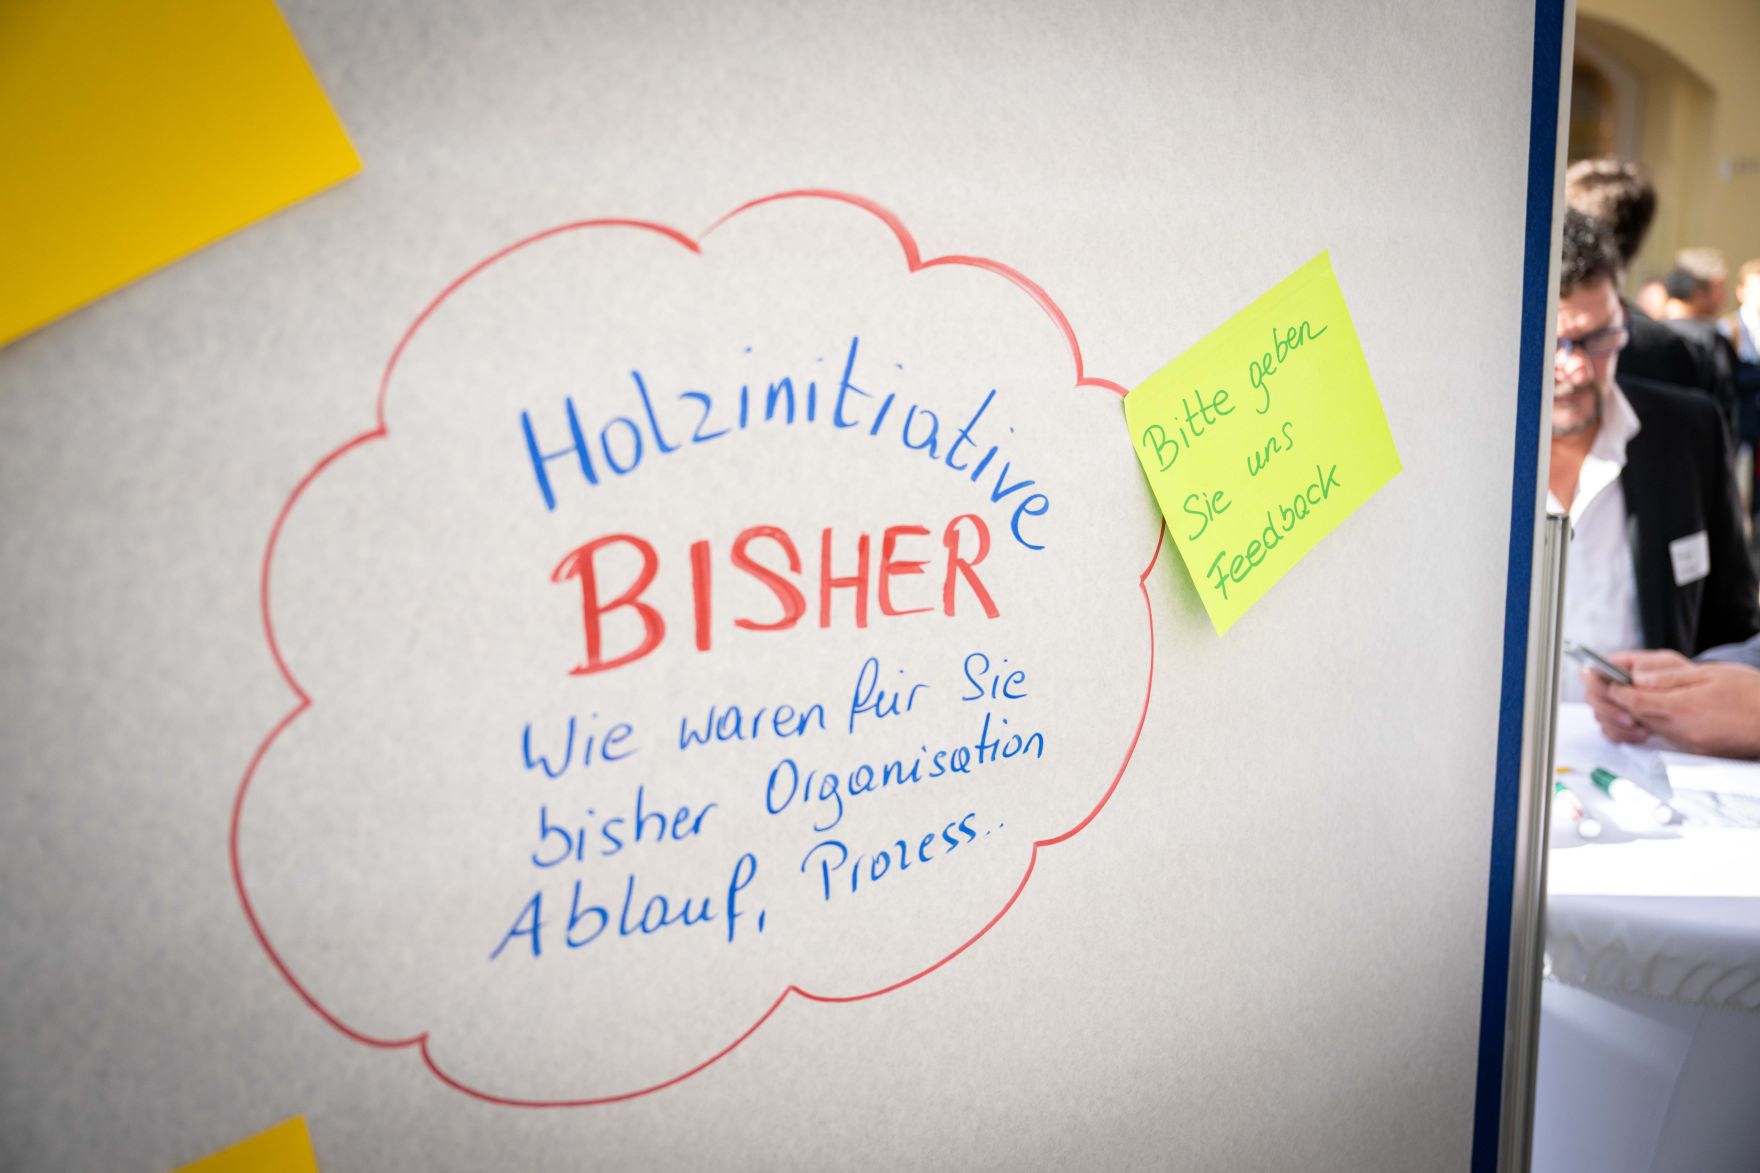 Holzinitiative
BISHER
Wie waren für Sie
bisher Organisation
Ablauf, Prozess..
Bitte geben
Sie uns
Feedback